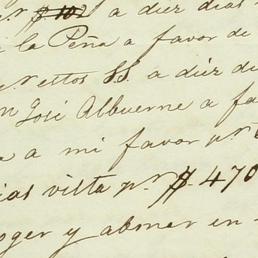 $ 102 a diez dias
la Peña a favor de
Nettos SS. a diez de
n José Albuerne a fa
a a mi favor pr.
ias vista pr. $ 470
oger y abonar en